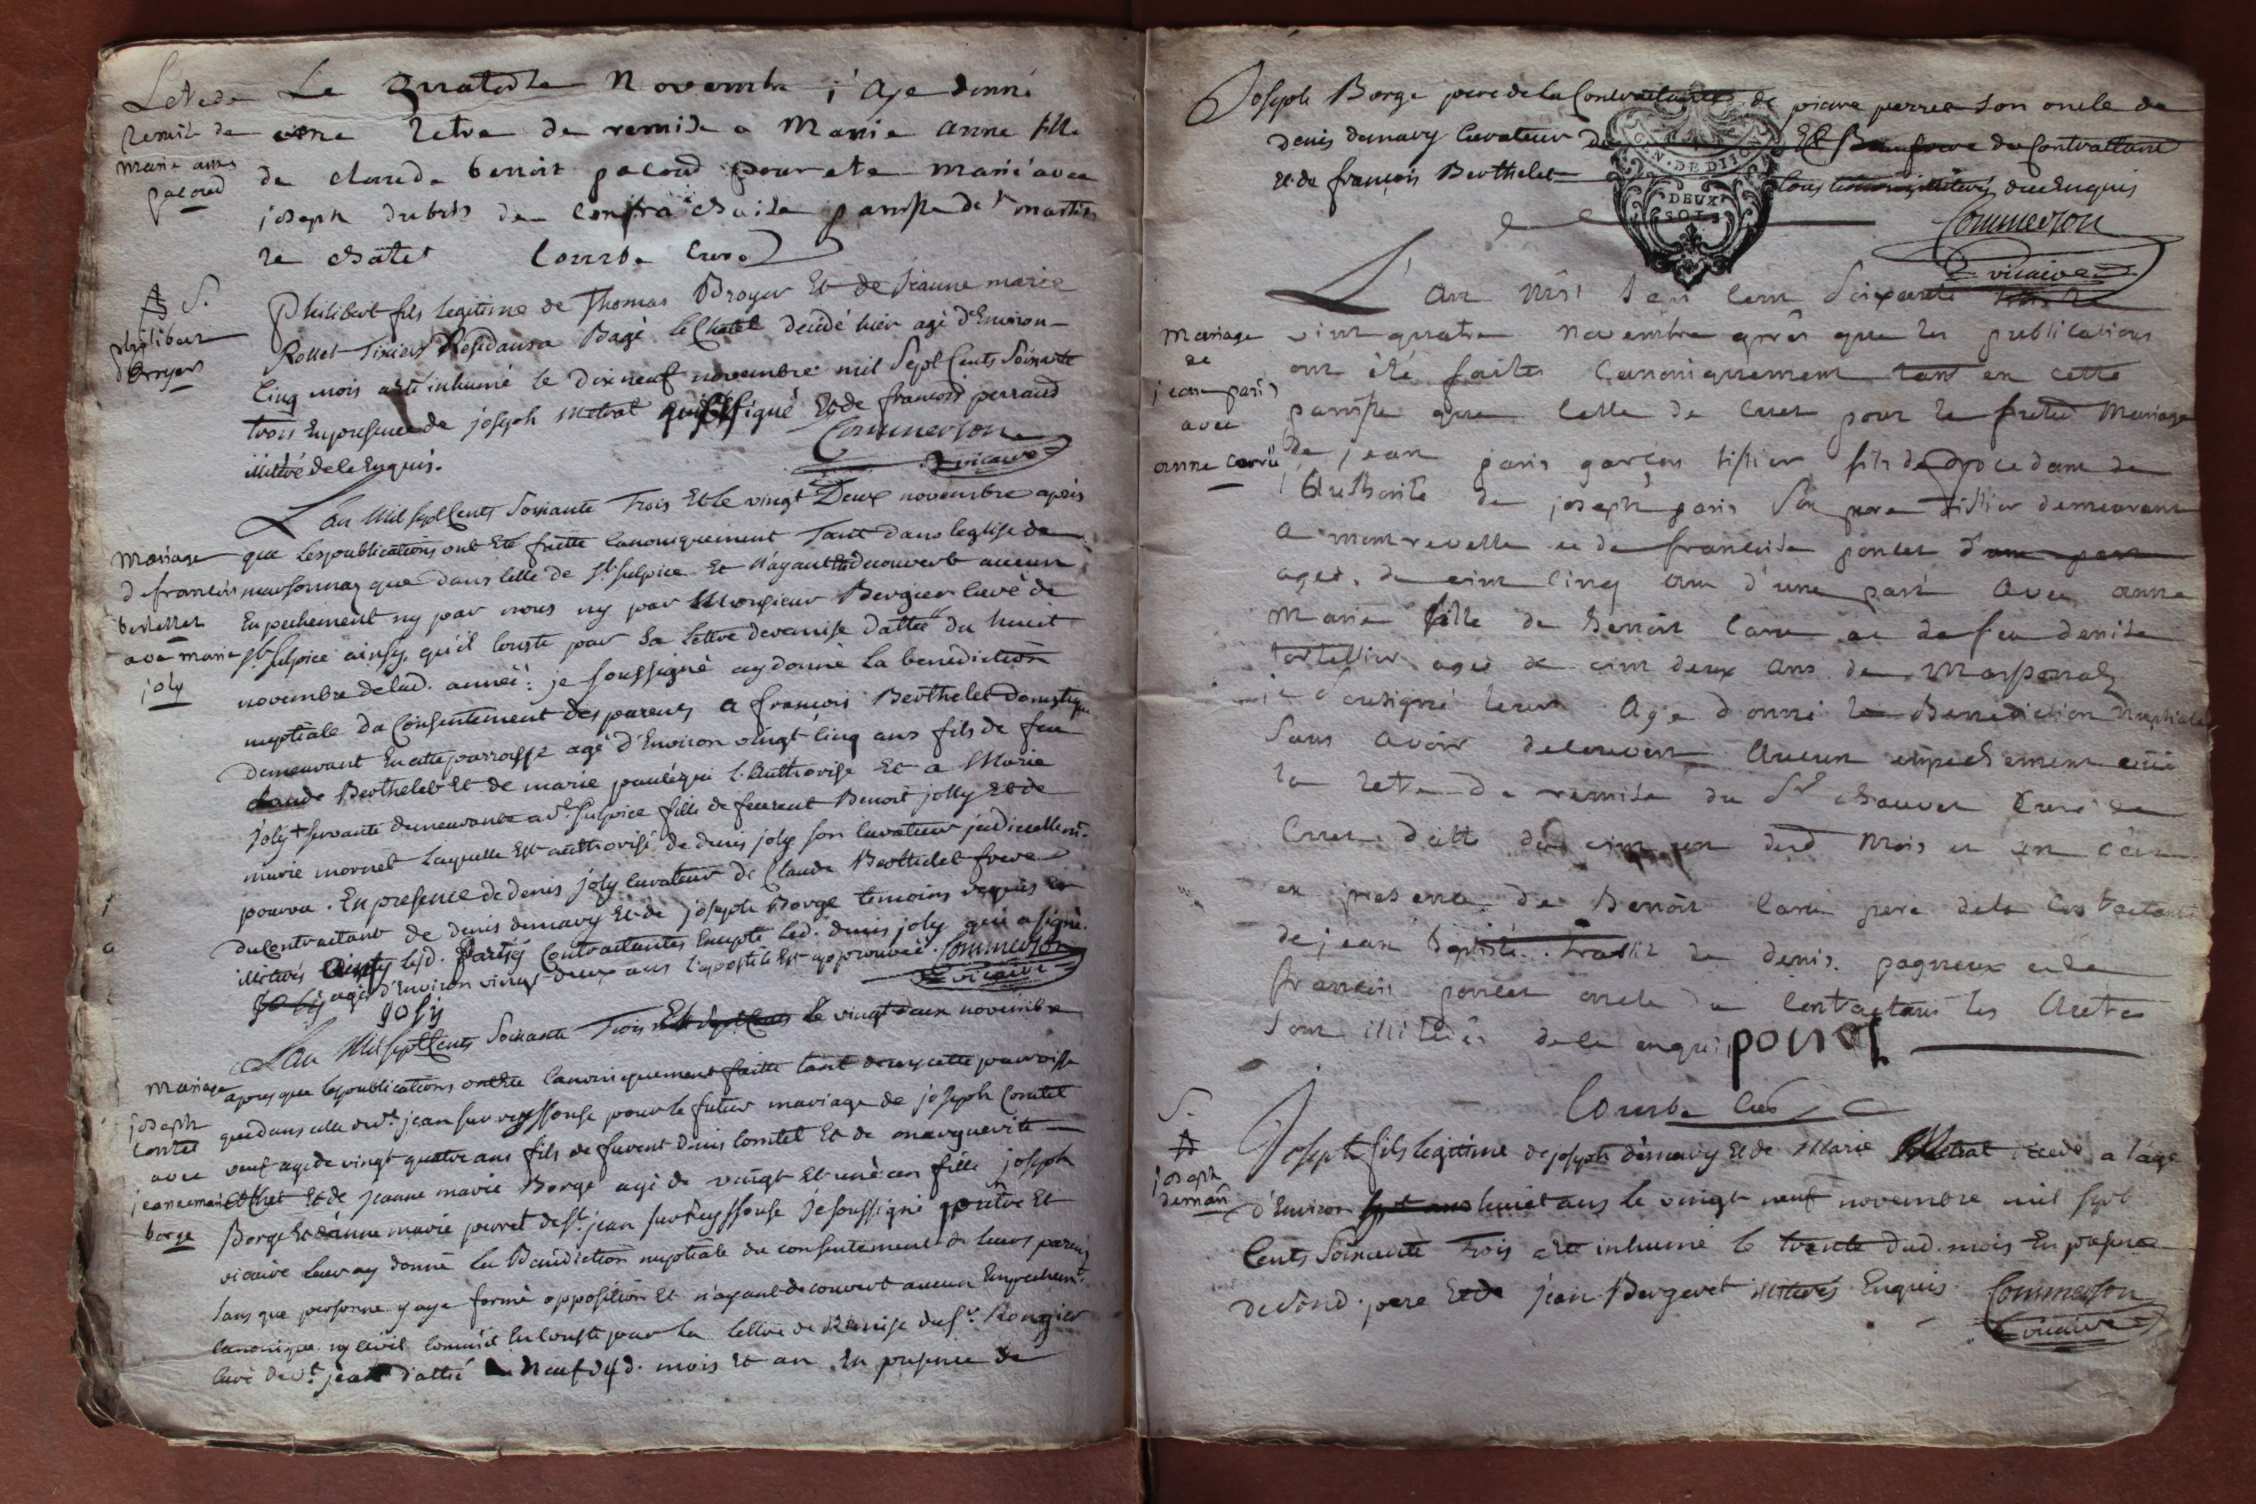 Le quatorze Novembre j'aye donné
une letre de remise a Marie anne fille
de claude benoit pacoud pour etre marié avec
joseph dubois de confrançhaite paroisse de st martin
le chatel Courbe Curé
Letre de
remise de
marie anne
pacoud
Philibert fils legitime de Thomas Broyer Et de Jeanne marie
Rollet Tixiers Residans a Bagé le Chatel decédé hier agé d'Environ
Cinq mois a été inhumé le Dix neuf novembre mil Sept Cents Soixante
trois En presence de joseph metral qui a signé Et de francois perraud
illitéré de le Enquis.
Commerson
vicaire
S.
philibert
broyer
L'an Mil Sept Cents Soixante Trois Et le vingt Deux novembre après
que les publications ont été faitte Canoniquement Tant dans leglise de
marsonnas que dans celle de St. Sulpice Et N'ayant decouvert aucun
Enpechement ny par nous ny par Monsieur Bergier Curé de
St. Sulpice ainsy qu'il Conste par Sa lettre de remise dattée du huit
novembre de lad. année: je soussigné ay donné la benediction
nuptiale du Consentement des parens a francois Berthelet domestique
demeurant En cette parroisse agé d'Environ vingt Cinq ans fils de feu
Claude Berthelet Et de marie qui l'authorise Et a Marie
joly + servante demeurante a St. Sulpice fille de feu Benoit jolly et de
marie mornet laquelle Est authorisé de denis joly son Curateur judiciellemt.
pourvu. En presence de denis joly Curateur de Claude Berthelet frere
du Contractant de denis demary Et de joseph Borge temoins requis
illiterés lesd. parties Contractantes Excepté led. denis joly qui a signé.
+ agée d'Environ vingt deux ans l'apostile Est approuvée. Commerson
joly vicaire
Mariage
d francois
bertellet
avec marie
joly
L'an Mil Sept Cents Soixante Trois Et le vingt deux novembre
apres que les publications ont été Canoniquement faitte tant dans cette parroisse
que dans celle de st. jean sur reyssouse pour le futur mariage de joseph Comtet
veuf agé de vingt quatre ans fils de Denis Comtet Et de marguerite
Et de Jeanne marie Borge agé de vingt Et un an fille joseph
Borge Et danne marie pouret de St. jean sur Reyssouse je soussigné prêtre Et
vicaire leur ay donné la Benediction nuptiale du consentement de leurs parens
sans que personne y aye formé opposition Et n'ayant decouvert aucun Enpechemt.
canonique ny civil comme il En conste par la lettre de Remise du Sr. Rougier
Curé de St. jean dattée neuf dud. mois Et an. En presence de
Mariage
joseph
comtet
avec
jeanne marie
borge
Joseph Borge pere de la Contractante de pierre perret son oncle de
denis demary Curateur Et Beaufrere du Contractant
Et de francois Berthelet tous illiterés de ce Enquis
Commerson
vicaire
G. N. DE DIJON
DEUX
SOLS
L'an Mil Sept Cent Soixante trois le
vint quatre Novembre aprés que les publications
ont été faites Canoniquement tant en cette
paroisse que celle de Cuet pour le futur Mariage
de jean paris garçon tissier fils de procedant de
l'authorité de joseph paris son pere tissier demeurant
a montrevelle et de francoise poncet d'une part
agés de vint cinq ans d'une part avec anne
Marie fille de Benoit Carru et de feu denise
agée de vint deux ans de Marsonas
je sousigné leur aye donné la Benediction Nuptiale
Sans avoir decouvert Aucun empechement
la letre de remise du Sr chauvet Curé de
Cuet datté du vint un dud Mois et an
en presence de Benoit Carru pere de la Contractante
de jean Baptiste de denis pagneux et de
francois poncet oncle du Contractans les Autres
sont illitérés de le enquis poncet
Courbe Curé
Mariage
de
jean paris
avec
anne Carru
Joseph fils legitime de joseph demary Et de Marie Metral decedé a l'age
d'Environ huict ans le vingt neuf novembre mil Sept
Cents Soixante Trois a été inhumé le trente dud. mois En presence
de Sond. pere Et de jean Bergeret illiterés Enquis. Commerson
vicaire
S.
joseph
demari